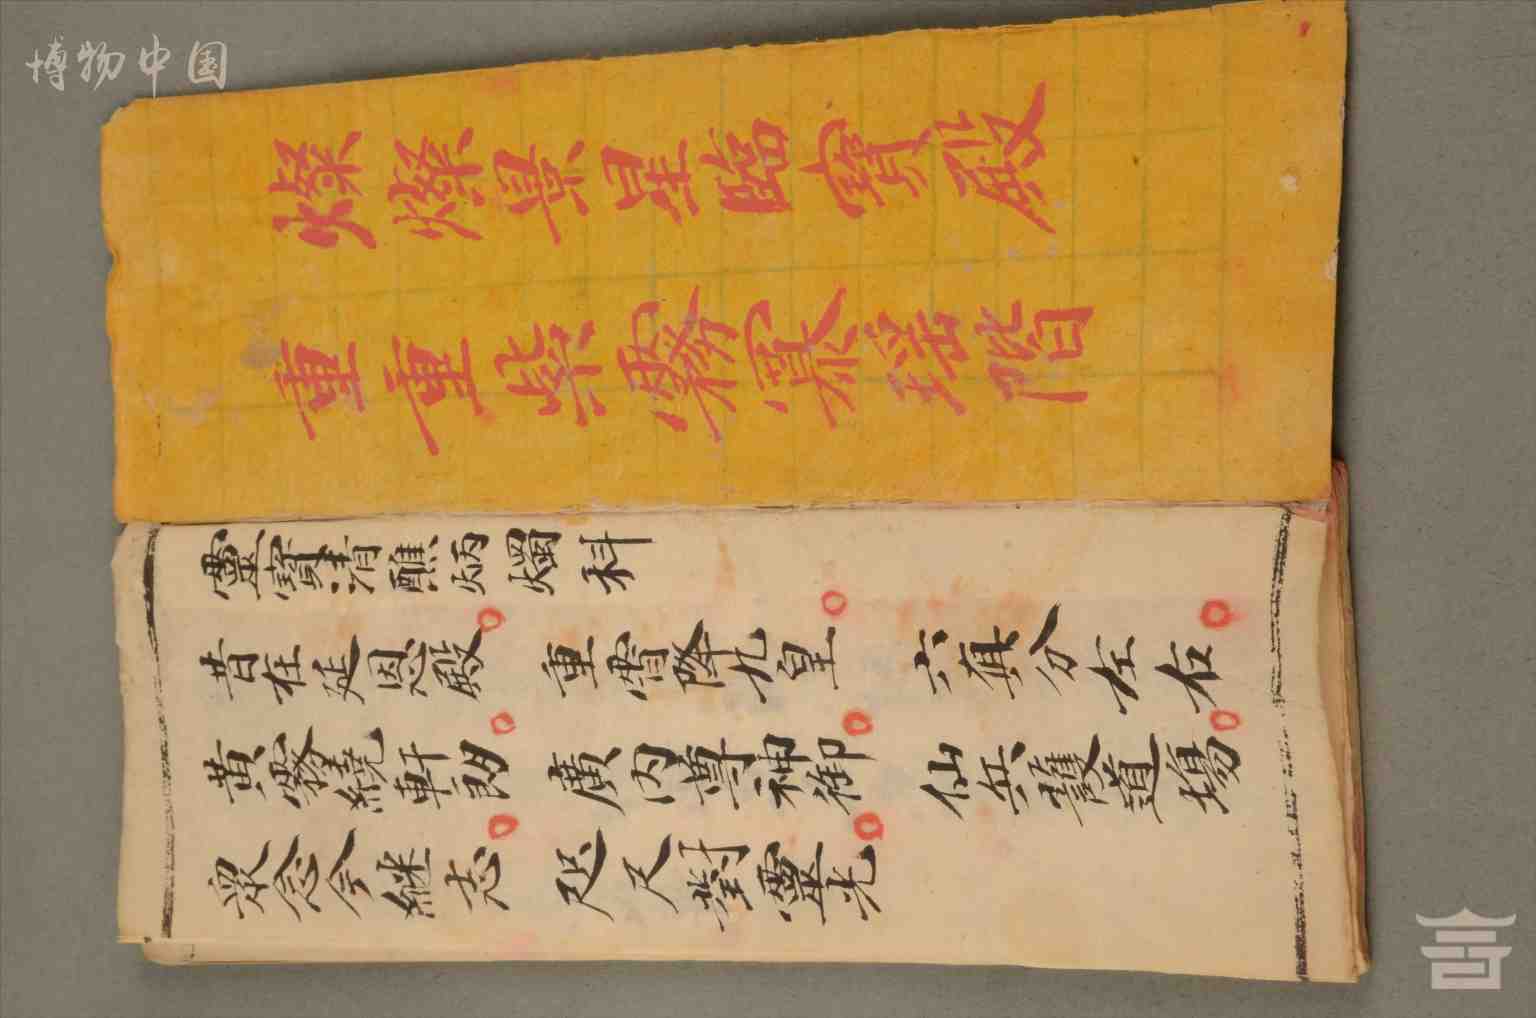 燦燦真星臨寶殿
重重紫霧瑤階
靈寶清醮炳燭科
昔在延恩殿 重霄降九皇 六真分左右
黃霧繞軒朗 廣內尊神御 仙兵護道場
眾念今繼志 咫尺對靈光
博物中国